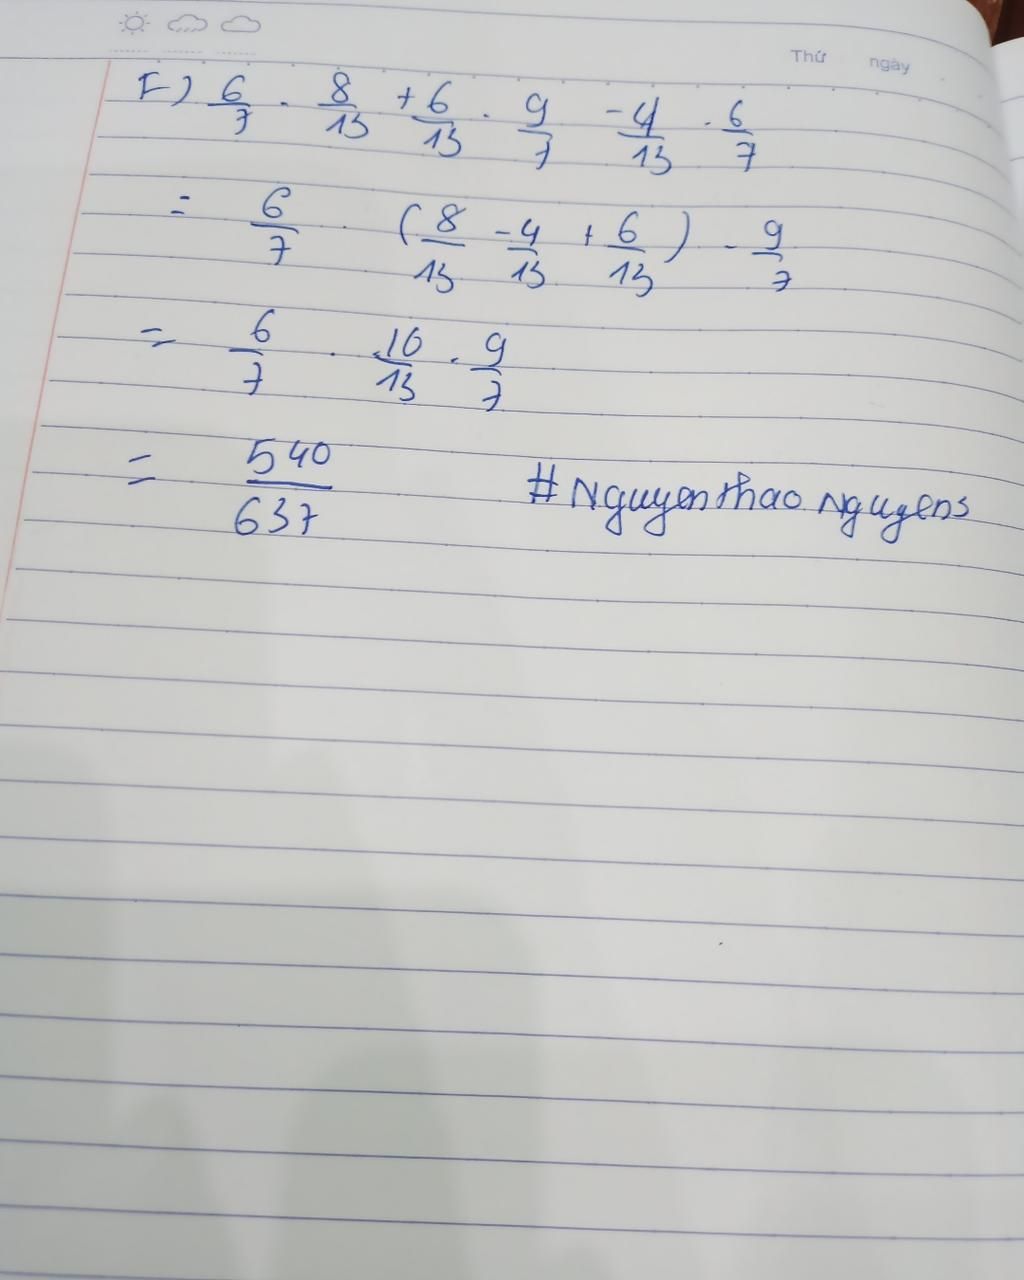 Thứ ngày
F) 6/7 . 8/13 + 6/13 . 9/7 - 4/13 . 6/7
= 6/7 . (8/13 - 4/13 + 6/13) - 9/7
= 6/7 . 10/13 . 9/7
= 540/637 #Nguyenthao Nguyens